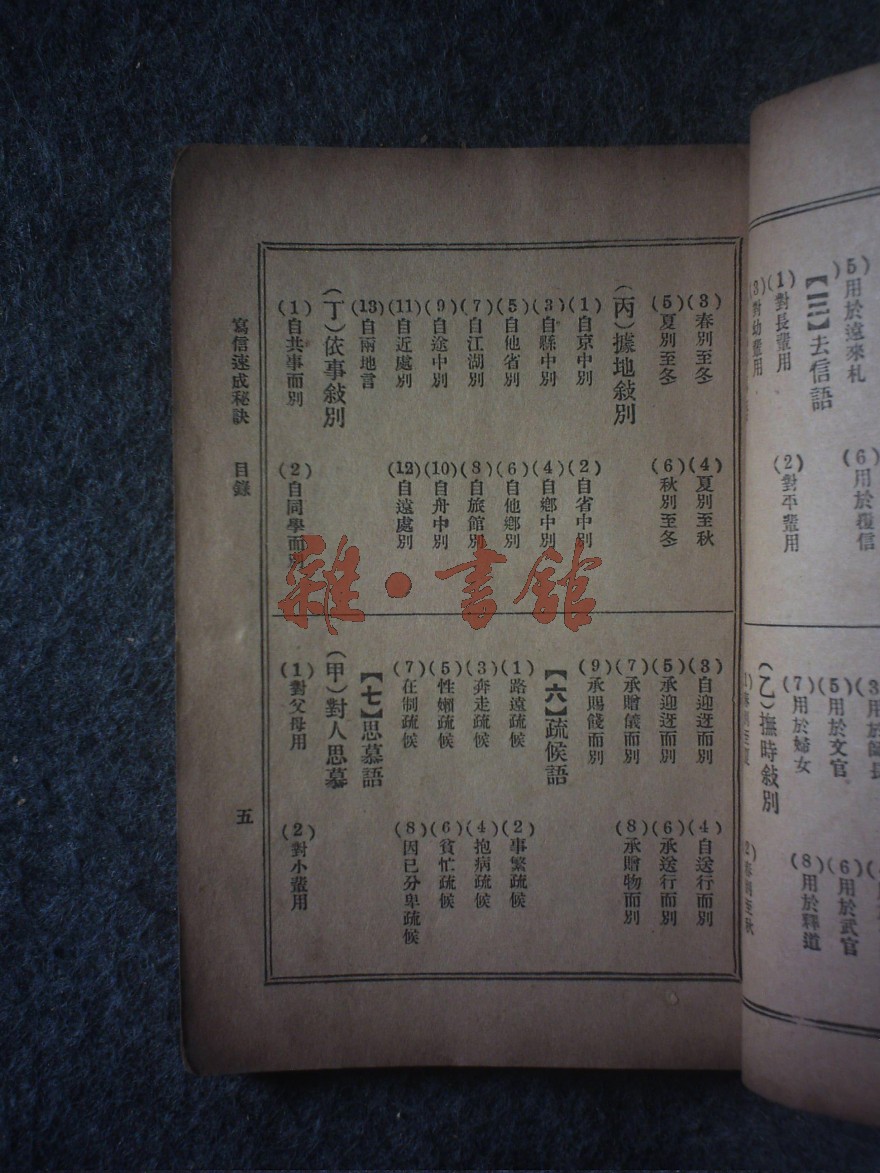 (5)用於遠來札
(6)用於覆信
【三】去信語
(1)對長輩用
(2)對平輩用
(3)對幼輩用
(3)用於師長
(5)用於文官
(6)用於武官
(7)用於婦女
(8)用於釋道
(乙)撫時敍別
(1)春別至夏
(2)春別至秋
(3)春別至冬
(4)夏別至秋
(5)夏別至冬
(6)秋別至冬
(丙)據地敍別
(1)自京中別
(2)自省中別
(3)自縣中別
(4)自鄉中別
(5)自他省別
(6)自他鄉別
(7)自江湖別
(8)自旅館別
(9)自途中別
(10)自舟中別
(11)自近處別
(12)自遠處別
(13)自兩地言
(丁)依事敍別
(1)自共事而別
(2)自同學而別
(3)自迎迓而別
(4)自送行而別
(5)承迎迓而別
(6)承送行而別
(7)承贈儀而別
(8)承贈物而別
(9)承賜餞而別
【六】疏候語
(1)路遠疏候
(2)事繁疏候
(3)奔走疏候
(4)抱病疏候
(5)性嬾疏候
(6)貧忙疏候
(7)在制疏候
(8)因已分卑疏候
【七】思慕語
(甲)對人思慕
(1)對父母用
(2)對小輩用
寫信速成秘訣 目錄 五
雜·書館